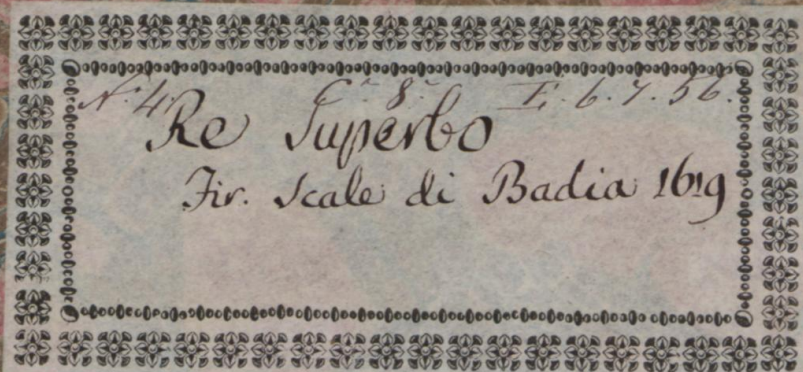 N.° 4. C.e 8.e E. 6. 7. 56.
Re Superbo
Fir. Scale di Badia 1619